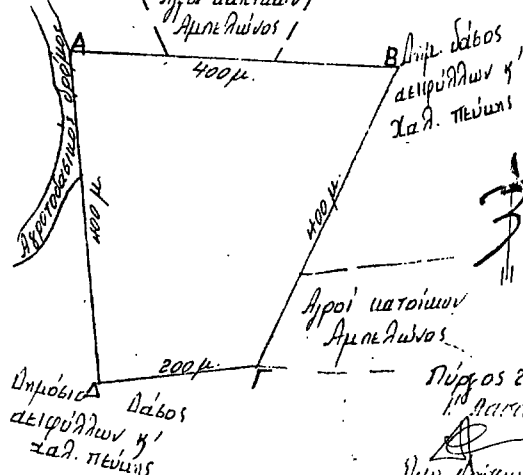 Αγροί κατοίκων
Αμπελώνος
Α
Β
400μ.
Δημ. δάσος
αειφύλλων κ'
Χαλ. πεύκης
Αγροτοδασικός δρόμος
400μ.
400μ.
Αγροί κατοίκων
Αμπελώνος
200μ.
Γ
Δ
Δημόσιο Δάσος
αειφύλλων κ'
χαλ. πεύκης
Πύργος 2